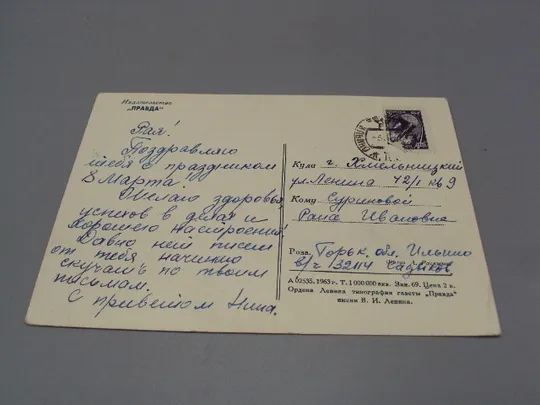 Издательство
„ПРАВДА“
Рая!
Поздравляю
тебя с праздником
8 Марта!
Желаю здоровья,
успехов в делах и
хорошего настроения!
Давно нет писем
от тебя начинаю
скучать по твоим
письмам.
С приветом Нина.
Куда г. Хмельницкий
ул. Ленина 72/1 кв 9
Кому Суриновой
Раисе Ивановне
Горьк. обл. Ильино
в/ч 32114 Садиков
А 02535. 1963 г. Т. 1 000 000 экз. Зак. 69. Цена 3 к.
Ордена Ленина типография газеты „Правда“
имени В. И. Ленина.